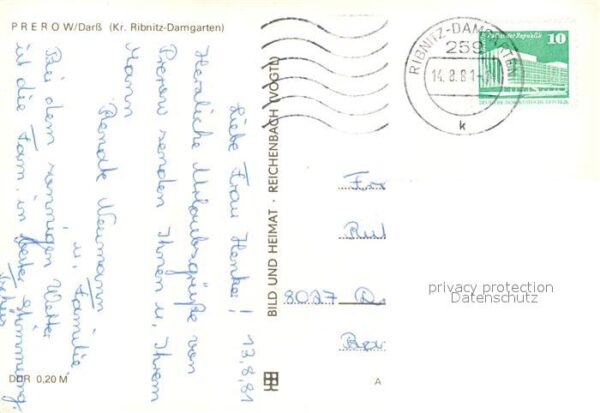 PREROW/Darß (Kr. Ribnitz-Damgarten)
13.8.81
Liebe Frau Henke!
Herzliche Urlaubsgrüße von
Prerow senden Ihnen u. Ihrem
Mann
Renate Neumann
u. Familie
Bei dem sonnigen Wetter
ist die Fam. in bester Stimmung.
DDR 0,20 M
BILD UND HEIMAT · REICHENBACH (VOGTL)
A
RIBNITZ-DAMGARTEN
259
14.8.81
k
10
DEUTSCHE DEMOKRATISCHE REPUBLIK
8027
privacy protection
Datenschutz